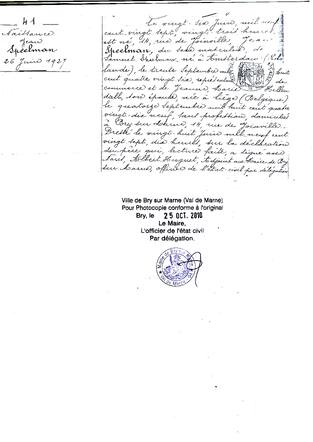 41
Naissance
Jean
Speelman
26 Juin 1927
Le vingt six Juin, mil neuf
cent vingt sept, vingt trois heures
est né, 14, rue de Joinville, Jean
Speelman, du sexe masculin, de
Samuel Speelman, né à Amsterdam (Hol
lande), le trente Septembre mil huit
cent quatre vingt six, représentant de
commerce et de Jeanne Marie
son épouse, née à Liège (Belgique)
le quatorze Septembre mil huit cent quatre
vingt dix neuf, sans profession, domiciliés
à Bry sur Marne, 14, rue de Joinville.
Dressé le vingt huit Juin mil neuf cent
vingt sept, dix heures, sur la déclaration
du père qui, lecture faite, a signé avec
Nous, Albert Huguet, Adjoint au Maire de Bry
sur Marne, officier de l'état-civil par délégation
Ville de Bry sur Marne (Val de Marne)
Pour Photocopie conforme à l'original
Bry, le 25 OCT. 2010
Le Maire,
L'officier de l'état civil
Par délégation.